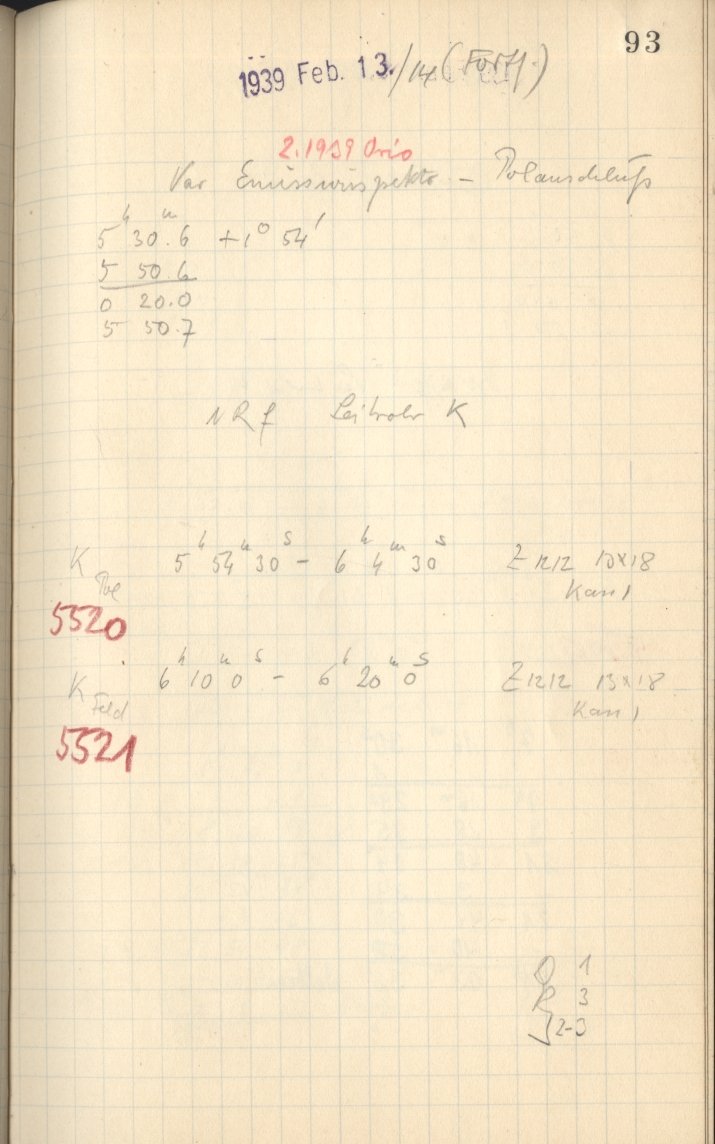 93
1939 Feb. 13./14 (Forts.)
2.1939 Orio
Var Emissionsspektr – Polanschluß
5h 30m.6 +1° 54'
5 50.6
0 20.0
5 50.7
NRf Leitrohr K
K Pol 5h 54m 30s – 6h 4m 30s Z 1212 13x18
Kass 1
5520
K Feld 6h 10m 0s – 6h 20m 0s Z 1212 13x18
Kass 1
5521
Q 1
R 3
J 2-3